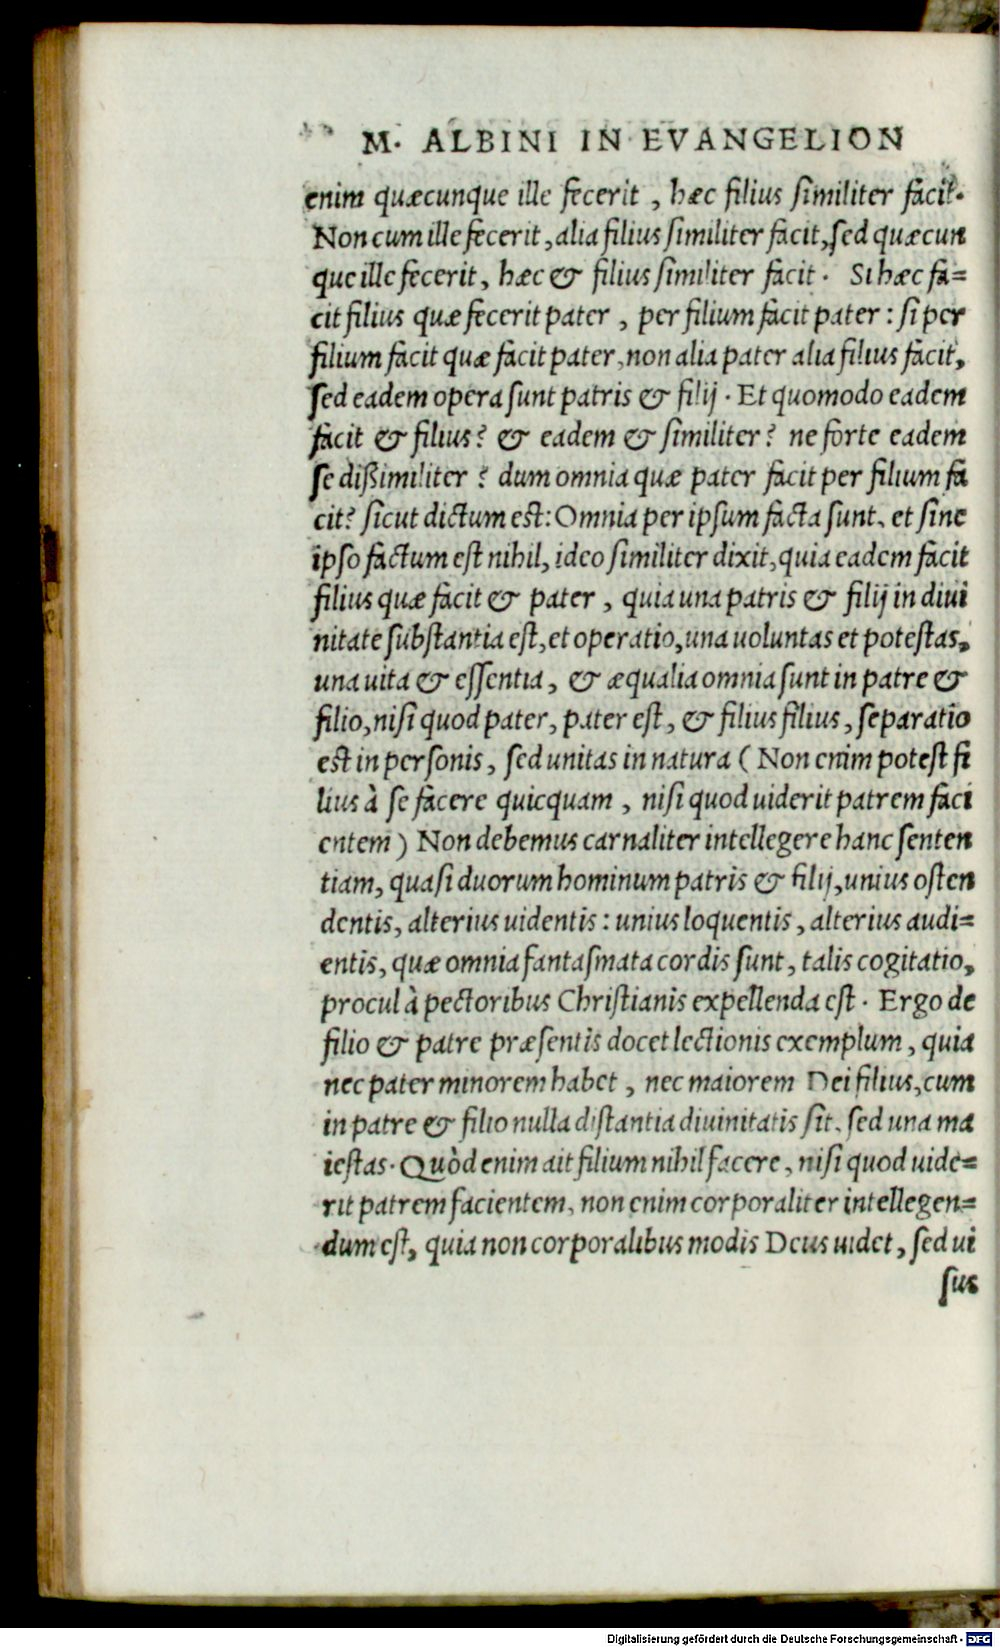 M. ALBINI IN EVANGELION
enim quæcunque ille fecerit, hæc filius similiter facit.
Non cum ille fecerit, alia filius similiter facit, sed quæcun
que ille fecerit, hæc & filius similiter facit. Si hæc fa=
cit filius quæ fecerit pater, per filium facit pater: si per
filium facit quæ facit pater, non alia pater alia filius facit,
sed eadem opera sunt patris & filij. Et quomodo eadem
facit & filius? & eadem & similiter? ne forte eadem
se dißimiliter? dum omnia quæ pater facit per filium fa
cit? sicut dictum est: Omnia per ipsum facta sunt, et sine
ipso factum est nihil, ideo similiter dixit, quia eadem facit
filius quæ facit & pater, quia una patris & filij in diui
nitate substantia est, et operatio, una uoluntas et potestas,
una uita & essentia, & æqualia omnia sunt in patre &
filio, nisi quod pater, pater est, & filius filius, separatio
est in personis, sed unitas in natura (Non enim potest fi
lius à se facere quicquam, nisi quod uiderit patrem faci
entem) Non debemus carnaliter intellegere hanc senten
tiam, quasi duorum hominum patris & filij, unius osten
dentis, alterius uidentis: unius loquentis, alterius audi=
entis, quæ omnia fantasmata cordis sunt, talis cogitatio,
procul à pectoribus Christianis expellenda est. Ergo de
filio & patre præsentis docet lectionis exemplum, quia
nec pater minorem habet, nec maiorem Dei filius, cum
in patre & filio nulla distantia diuinitatis sit, sed una ma
iestas. Quòd enim ait filium nihil facere, nisi quod uide=
rit patrem facientem, non enim corporaliter intellegen=
dum est, quia non corporalibus modis Deus uidet, sed ui
sus
Digitalisierung gefördert durch die Deutsche Forschungsgemeinschaft - DFG